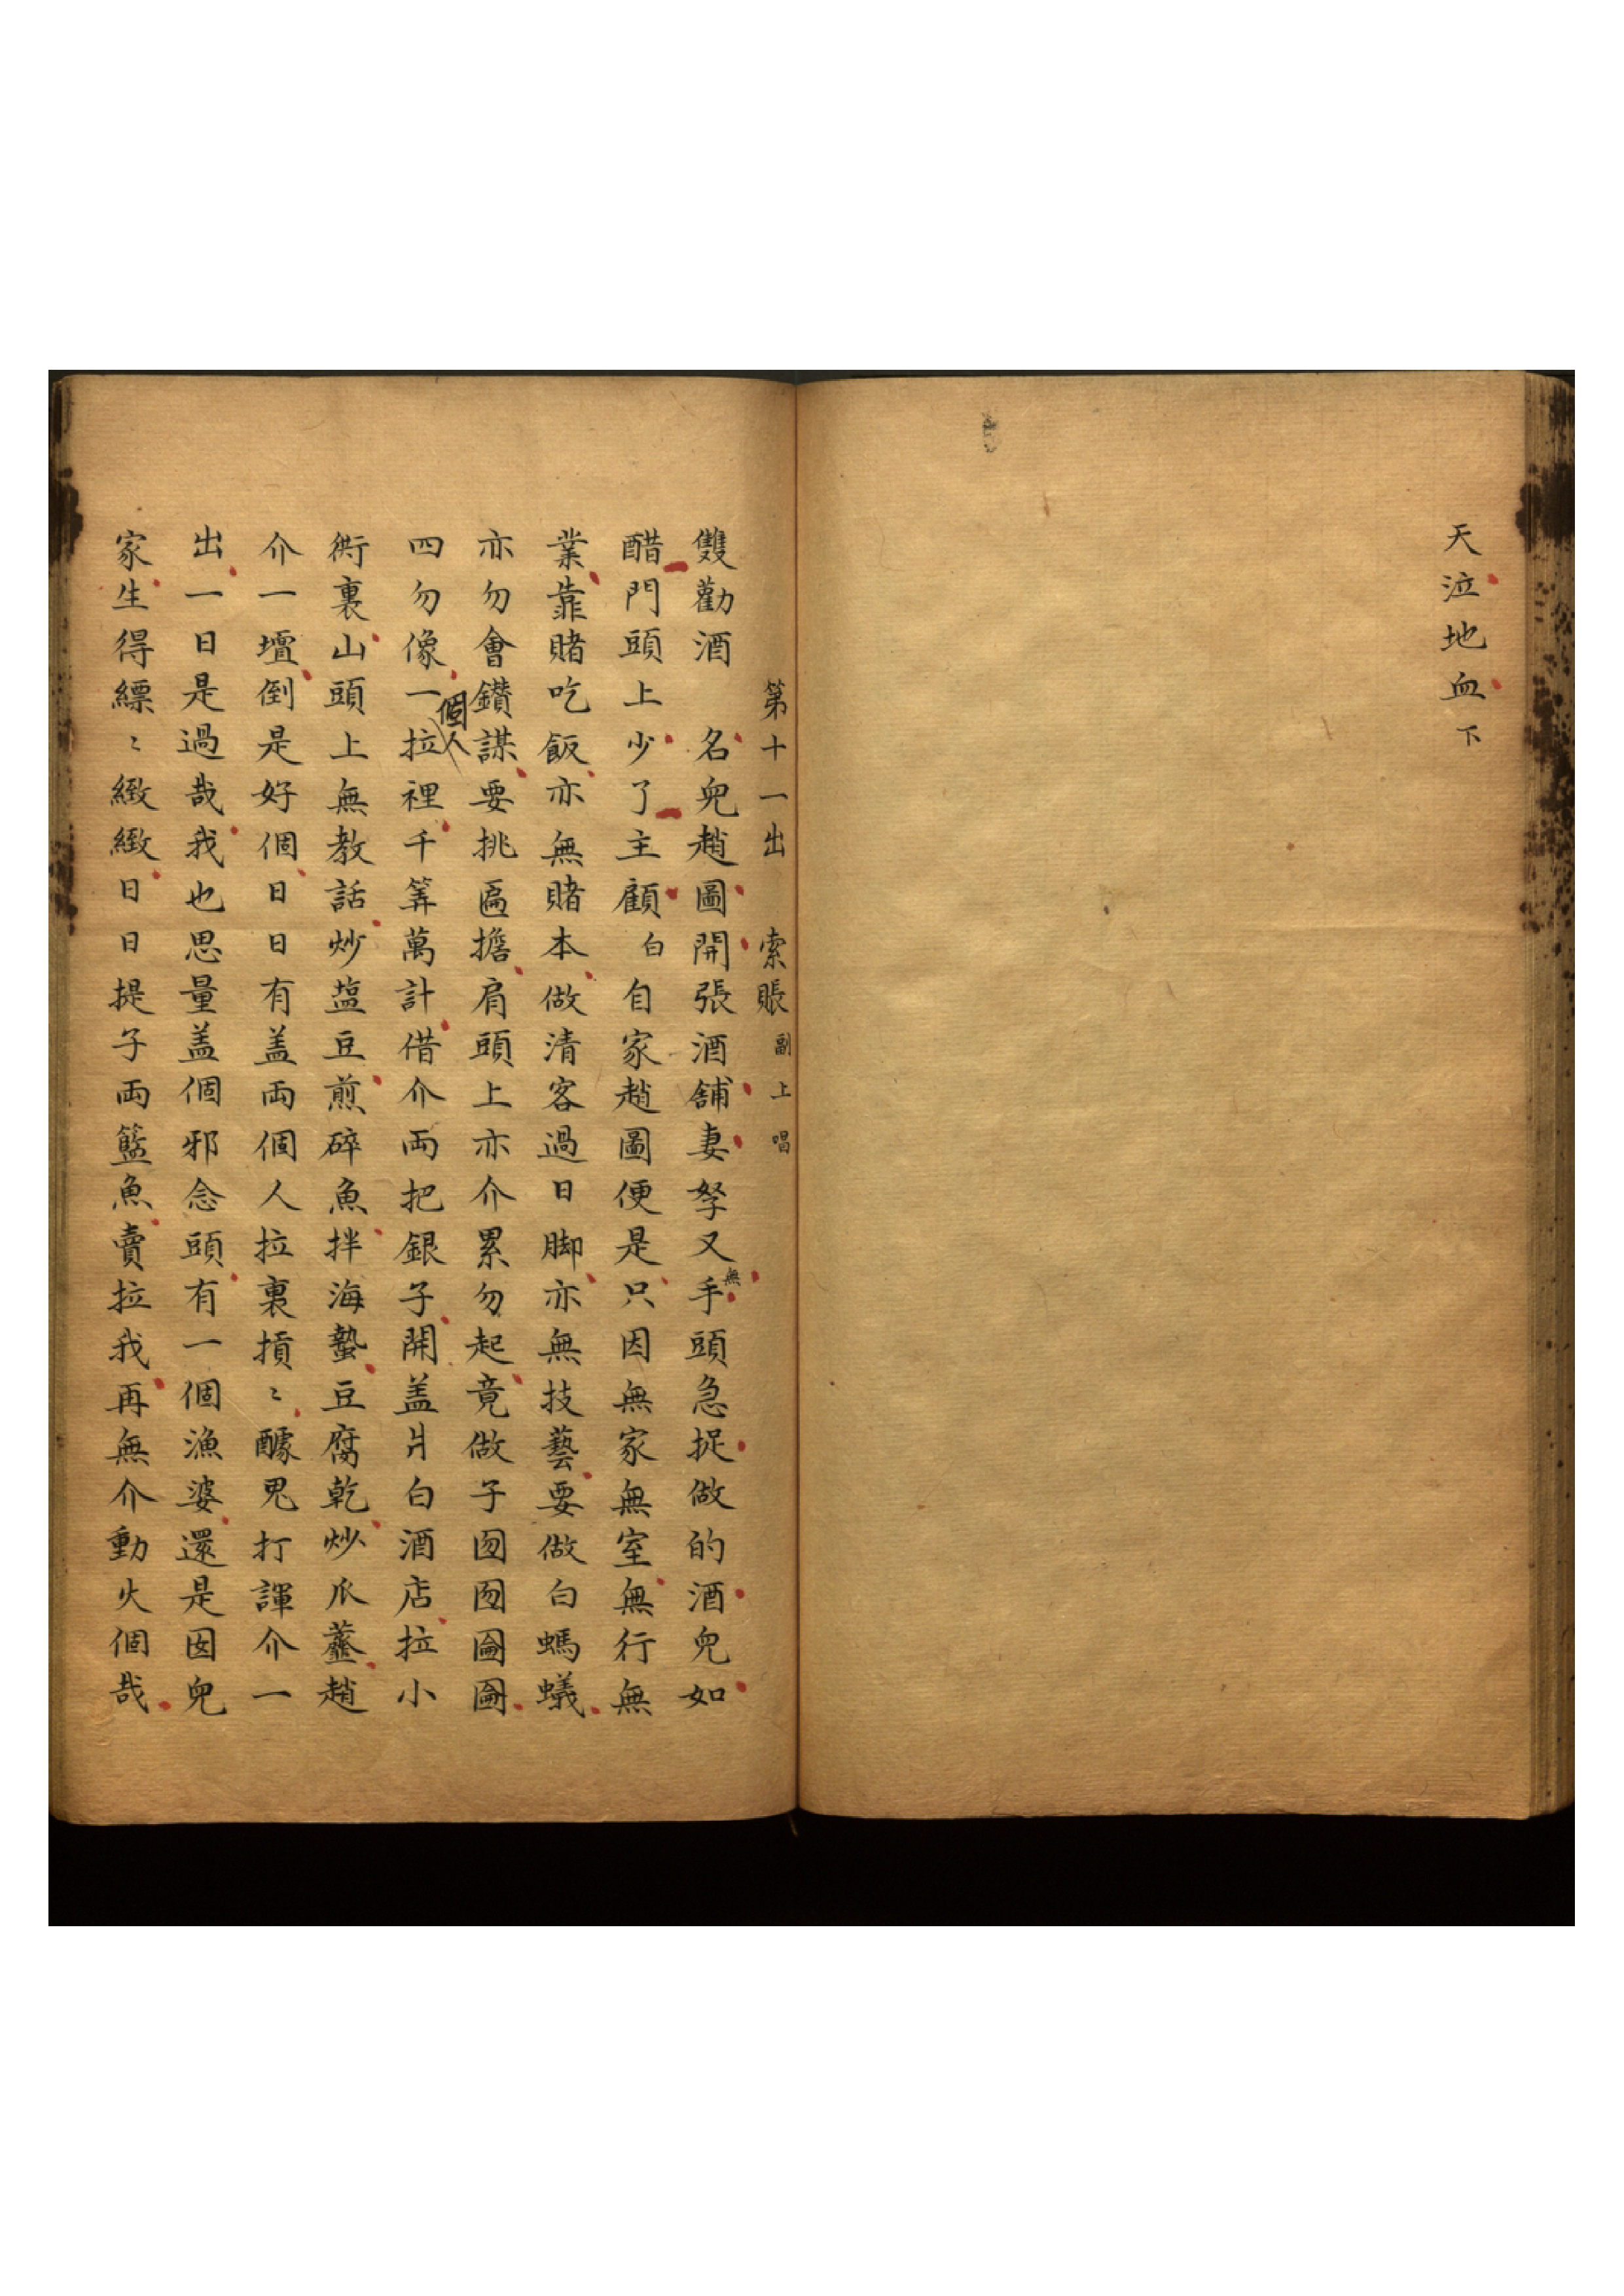 天泣地血下
第十一出 索賬 副上唱
雙勸酒 名兜趙圖開張酒舖妻孥又無手頭急捉做的酒兜如
醋門頭上少了主顧白自家趙圖便是只因無家無室無行無
業靠賭吃飯亦無賭本做清客過日脚亦無技藝要做白螞蟻
亦勿會鑽謀要挑匾擔肩頭上亦介累勿起竟做子囫囫圇圇
四勿像一個人拉裡千筭萬計借介兩把銀子開盖爿白酒店拉小
衖裏山頭上無教話炒塩豆煎碎魚拌海蜇豆腐乾炒瓜虀趙
介一壜倒是好個日日有盖兩個人拉裏摃〻醵鬼打諢介一
出一日是過哉我也思量盖個邪念頭有一個漁婆還是囡兜
家生得縹〻緻緻日日提子両籃魚賣拉我再無介動火個哉